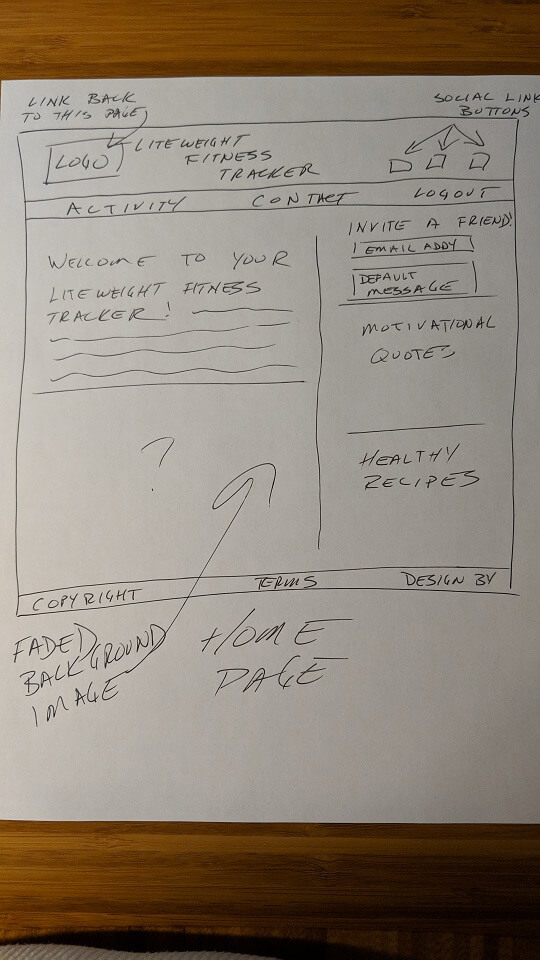 LINK BACK
TO THIS PAGE
SOCIAL LINK
BUTTONS
LOGO
LITEWEIGHT
FITNESS
TRACKER
ACTIVITY
CONTACT
LOGOUT
WELCOME TO YOUR
LITEWEIGHT FITNESS
TRACKER!
INVITE A FRIEND!
EMAIL ADDY
DEFAULT
MESSAGE
MOTIVATIONAL
QUOTES
?
HEALTHY
RECIPES
COPYRIGHT
TERMS
DESIGN BY
FADED
BACKGROUND
IMAGE
HOME
PAGE